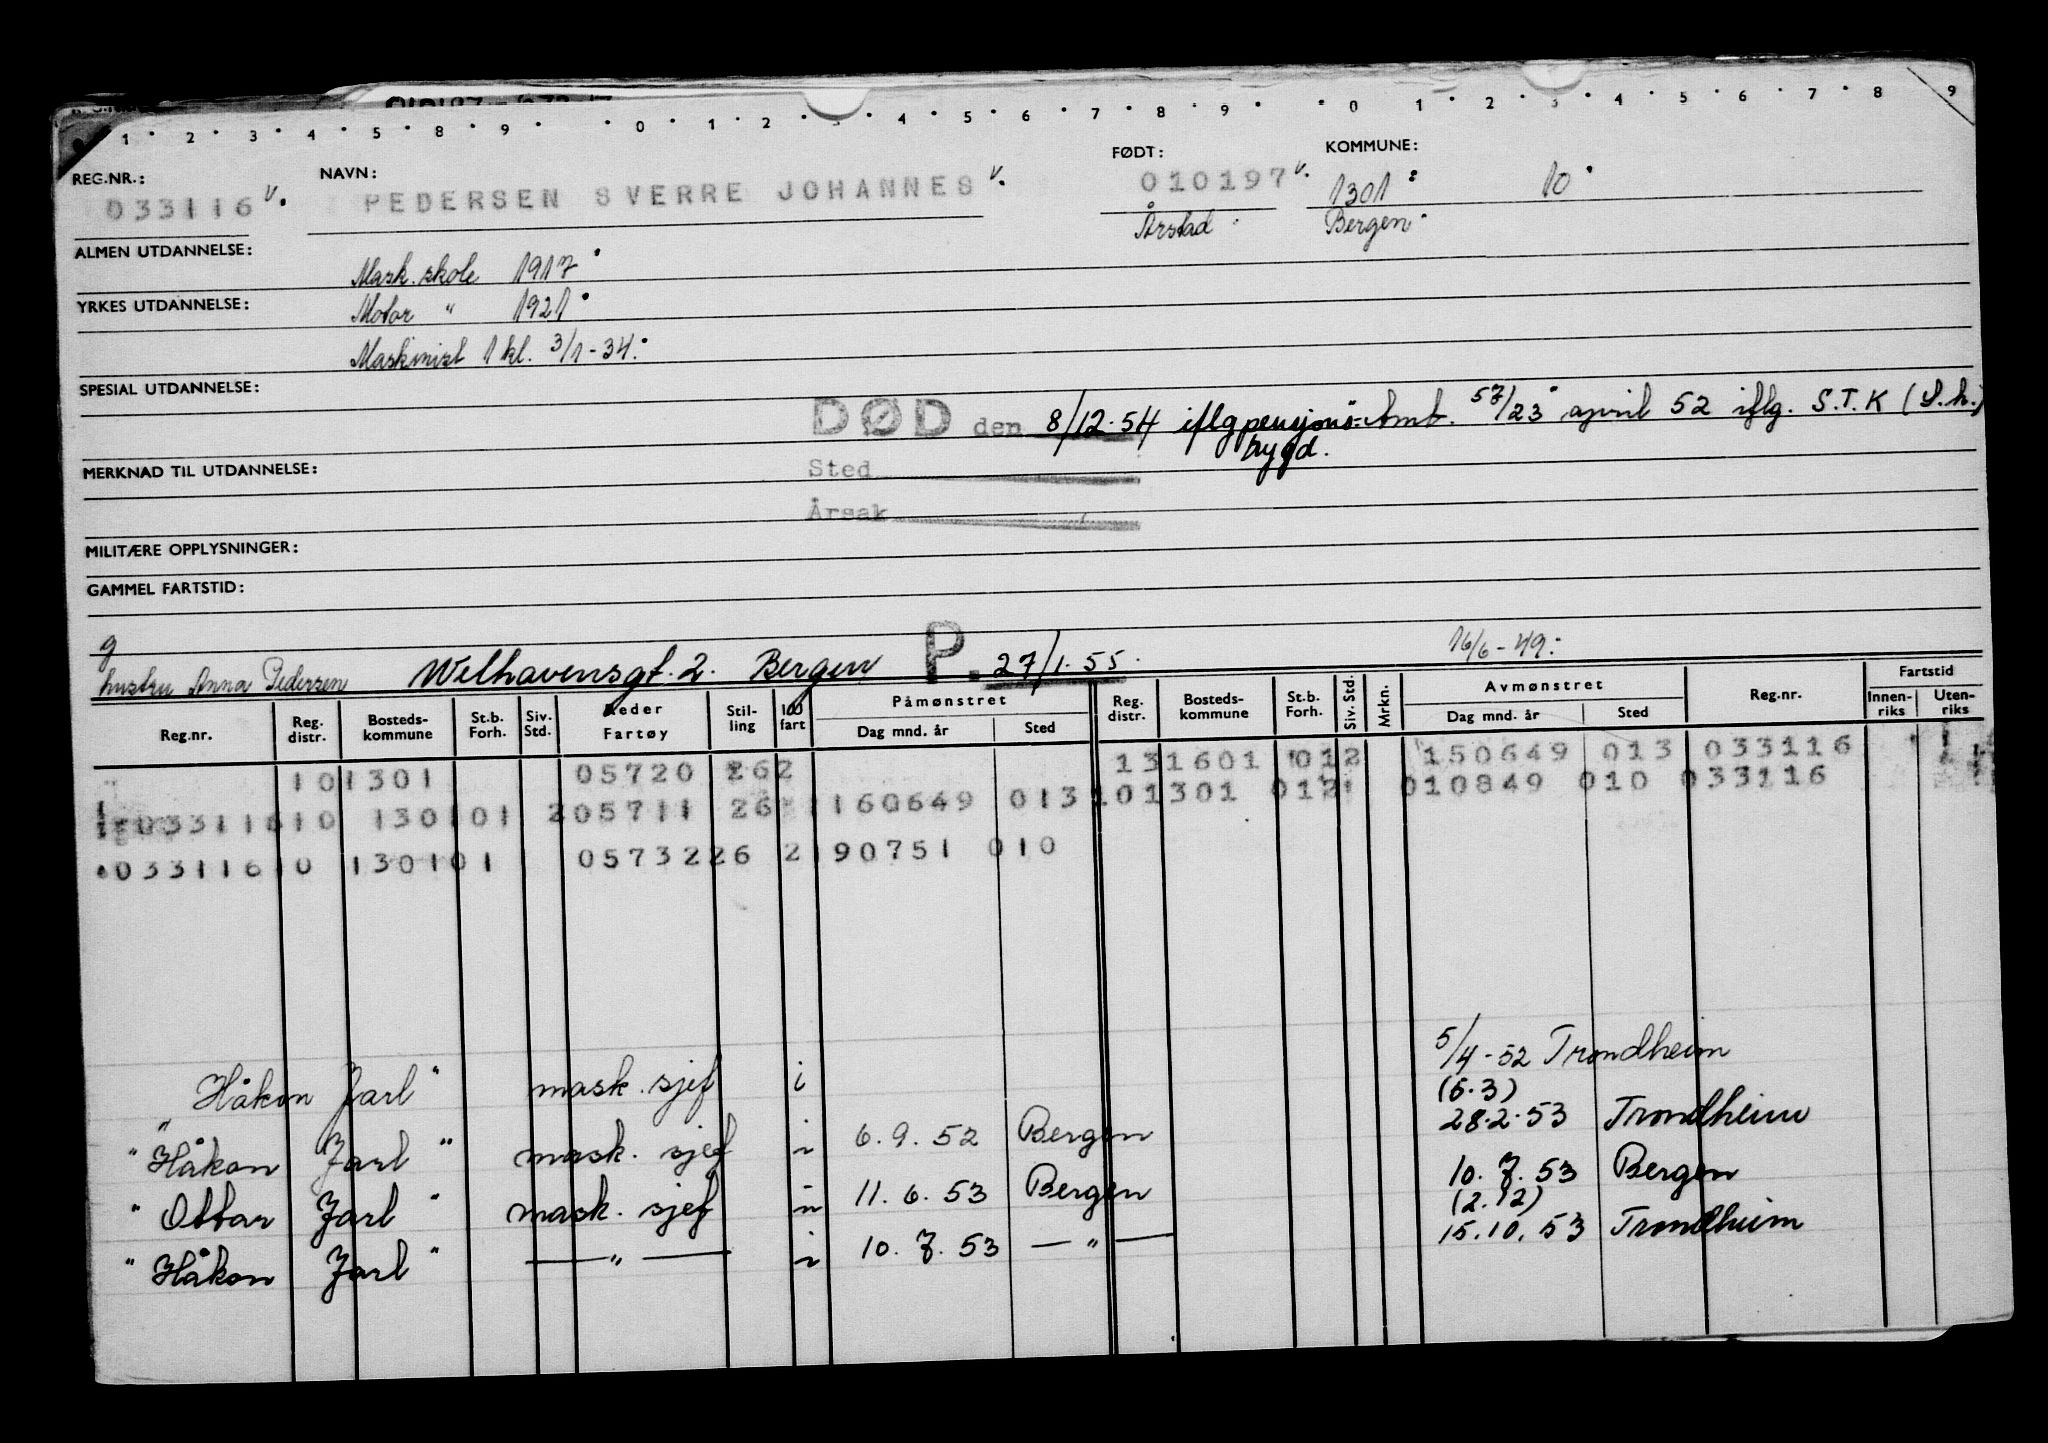 1 · 2 · 3 · 4 · 5 · 8 · 9 · · 0 · 1 · 2 · 3 · 4 · 5 · 6 · 7 · 8 · 9 · · 0 · 1 · 2 · 3 · 4 · 5 · 6 · 7 · 8 9
REG.NR.: NAVN: FØDT: KOMMUNE:
033116 v. PEDERSEN SVERRE JOHANNES v. 010197 v. 1301 10
Årstad Bergen
ALMEN UTDANNELSE: Mask. skole 1917
YRKES UTDANNELSE: Motor " 1921
Maskinist 1 kl. 3/1-34.
SPESIAL UTDANNELSE:
DØD den 8/12.54 iflg pensjons=Amt. 57/23 april 52 iflg. S.T.K (S.h.)
MERKNAD TIL UTDANNELSE: Sted
Årsak
MILITÆRE OPPLYSNINGER:
GAMMEL FARTSTID:
g
hustru Anna Pedersen Welhavensgt. 2. Bergen P. 27/1.55. 16/6-49.
Reg.nr. Reg. distr. Bosteds-kommune St.b. Forh. Siv. Std. Reder Fartøy Stil-ling fart Påmønstret Dag mnd. år Sted Reg. distr. Bosteds-kommune St.b. Forh. Siv. Std. Mrkn. Avmønstret Dag mnd. år Sted Reg.nr. Fartstid Innen-riks Uten-riks
101301 05720 262 131601 012 150649 013 033116
033116 10 130101 205711 26 160649 013 101301 012 010849 010 033116
033116 10 130101 05732 26 2 190751 010
" Håkon Jarl " mask. sjef i 5/4-52 Trondheim
(6.3)
" Håkon Jarl " mask. sjef i 6.9.52 Bergen 28.2.53 Trondheim
" Ottar Jarl " mask. sjef " 11.6.53 Bergen 10.7.53 Bergen
(2.12)
" Håkon Jarl " — " — i 10.7.53 — " — 15.10.53 Trondheim